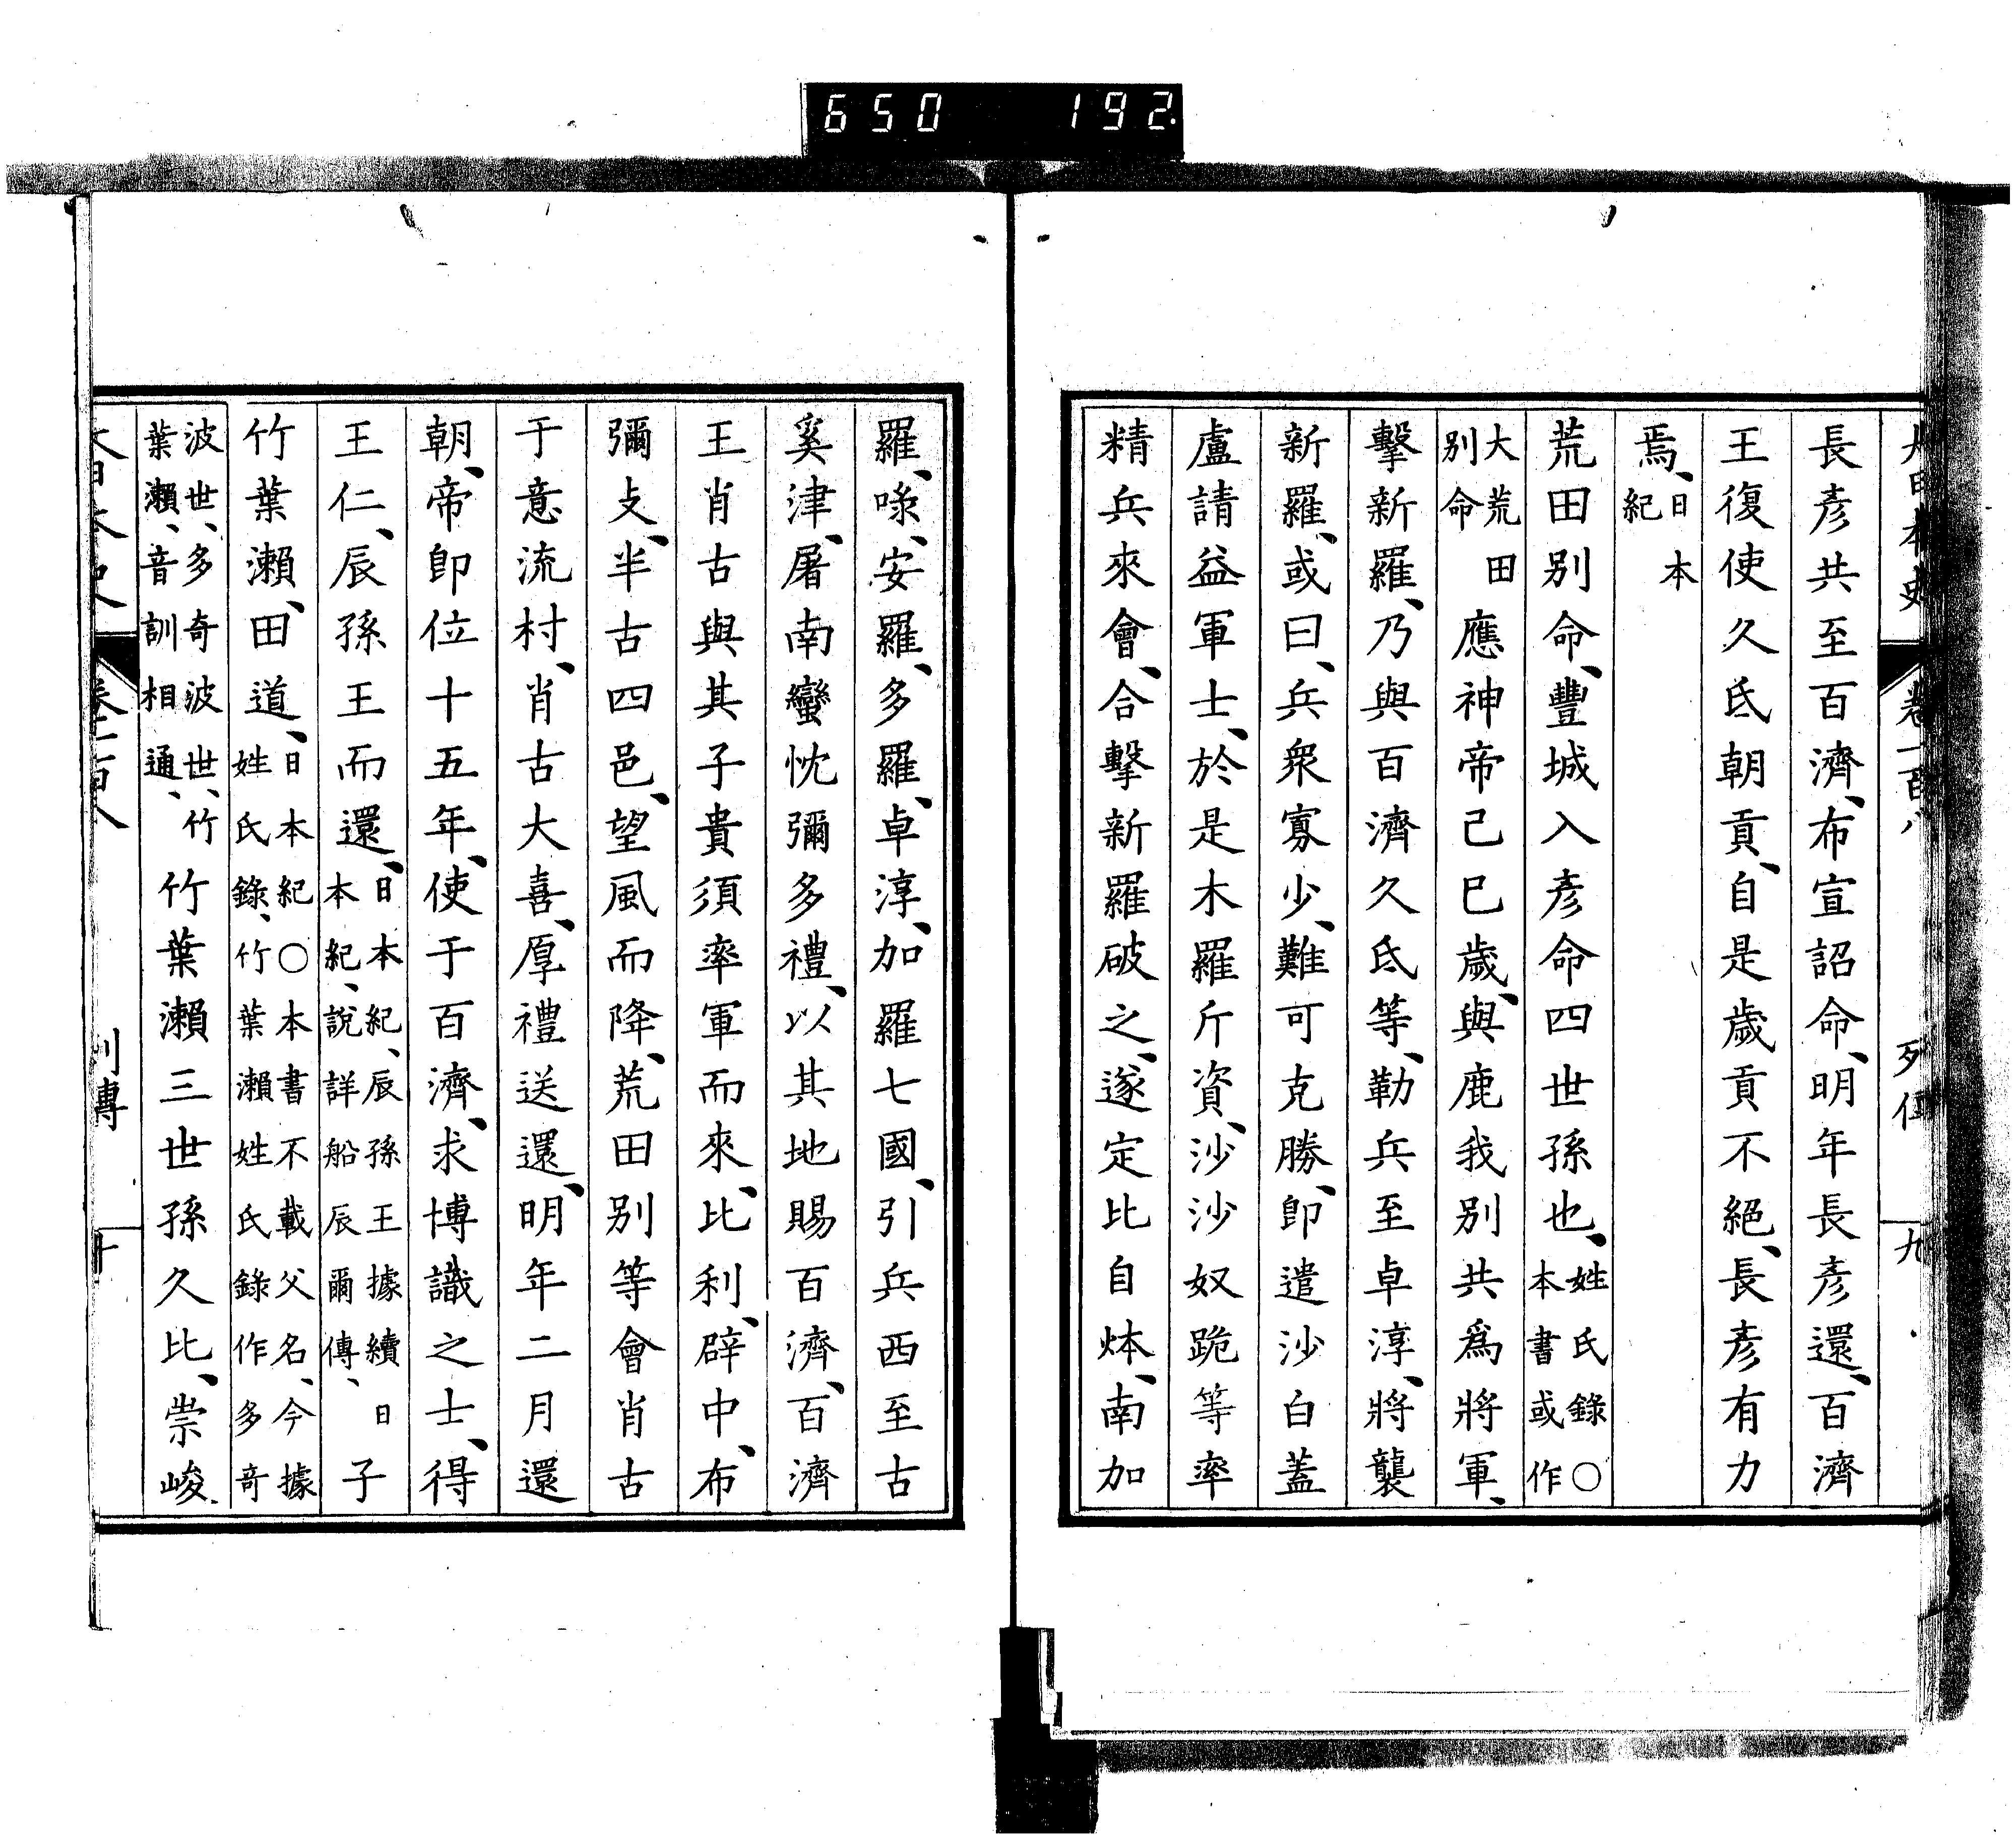 650 192
大日本史 卷一百八 列傳 九
長彥共至百濟、布宣詔命、明年長彥還、百濟
王復使久氐朝貢、自是歲貢不絕、長彥有力
焉、日本紀
荒田別命、豐城入彥命四世孫也、姓氏錄○本書或作
大荒田別命應神帝己巳歲、與鹿我別共爲將軍、
擊新羅、乃與百濟久氐等、勒兵至卓淳、將襲
新羅、或曰、兵衆寡少、難可克勝、卽遣沙白蓋
盧請益軍士、於是木羅斤資、沙沙奴跪等率
精兵來會、合擊新羅破之、遂定比自㶱、南加
羅、㖨、安羅、多羅、卓淳、加羅七國、引兵西至古
奚津、屠南蠻忱彌多禮、以其地賜百濟、百濟
王肖古與其子貴須率軍而來、比利、辟中、布
彌支、半古四邑、望風而降、荒田別等會肖古
于意流村、肖古大喜、厚禮送還、明年二月還
朝、帝卽位十五年、使于百濟、求博識之士、得
王仁、辰孫王而還、日本紀、辰孫王據續日本紀、說詳船辰爾傳、子
竹葉瀨、田道、日本紀○本書不載父名、今據姓氏錄、竹葉瀨姓氏錄作多奇
波世、多奇波世、竹葉瀨、音訓相通、竹葉瀨三世孫久比、崇峻
大日本史 卷一百八 列傳 十